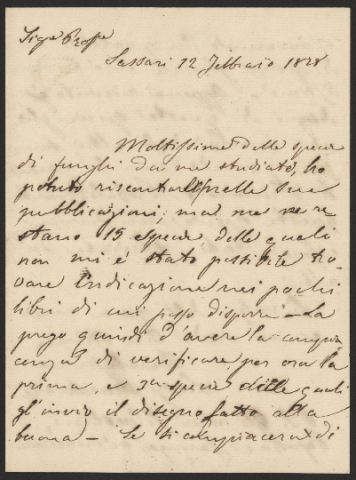 Sigr Profe
Sassari 12 Febbraio 1828
Moltissime delle specie
di funghi da me studiate, ho
potuto riscontrarle nelle sue
pubblicazioni; ma me ne re-
stano 15 specie delle quali
non mi é stato possibile tro
vare l'indicazione nei pochi
libri di cui posso disporre - La
prego quindi d'avere la compia
cenza di verificare per ora la
prima, e 3a specie delle quali
gl'invio il disegno fatto alla
buona - Se si compiacerà di